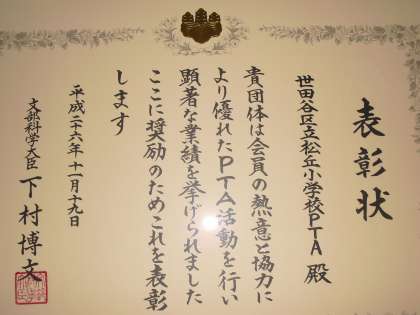 表彰状
世田谷区立松丘小学校PTA 殿
貴団体は会員の熱意と協力に
より優れたPTA活動を行い
顕著な業績を挙げられました
ここに奨励のためこれを表彰
します
平成二十六年十一月十九日
文部科学大臣 下村博文